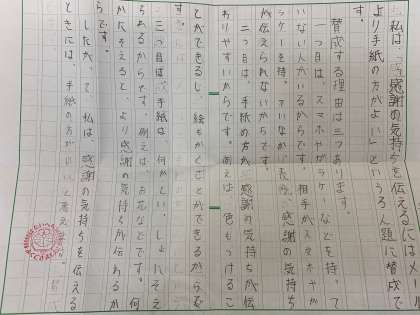 私は、「感謝の気持ちを伝えるにはメール
より手紙の方がよい」というろん題に賛成で
す。
賛成する理由は三つあります。
一つ目は、スマホやガラケーなどを持って
いない人がいるからです。相手がスマホやガ
ラケーを持っていなかったら、感謝の気持ち
が伝えられないからです。
二つ目は、手紙の方が感謝の気持ちが伝
わりやすいからです。例えば、色もつけるこ
とができるし、絵もかくことができるからで
す。
三つ目は、手紙は、何かといっしょにそえ
られるからです。例えば、お花などです。何
かにそえると、より感謝の気持ちが伝わるか
らです。
したがって、私は、感謝の気持ちを伝える
ときには、手紙の方がいいと考え